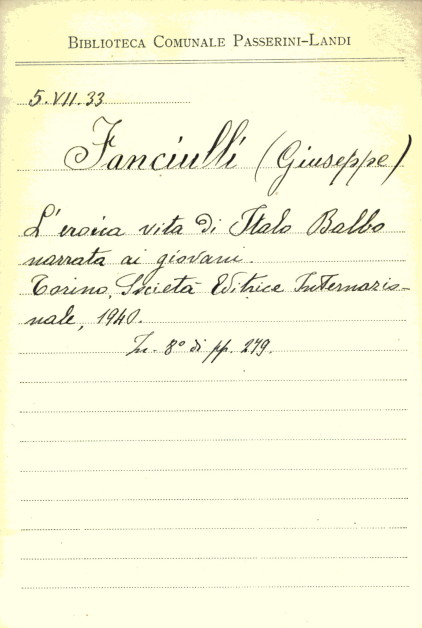 BIBLIOTECA COMUNALE PASSERINI-LANDI
5.VII.33
Fanciulli (Giuseppe)
L'eroica vita di Italo Balbo
narrata ai giovani.
Torino, Società Editrice Internazio-
nale, 1940.
In- 8° di pp. 279.